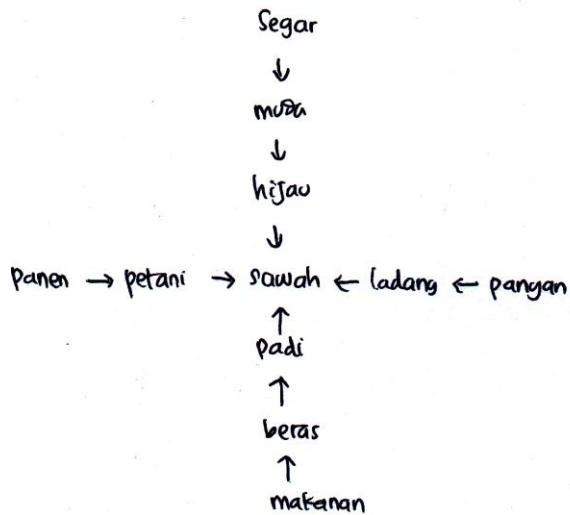 Segar
↓
muda
↓
hijau
↓
Panen → petani → sawah ← ladang ← pangan
↑
padi
↑
beras
↑
makanan